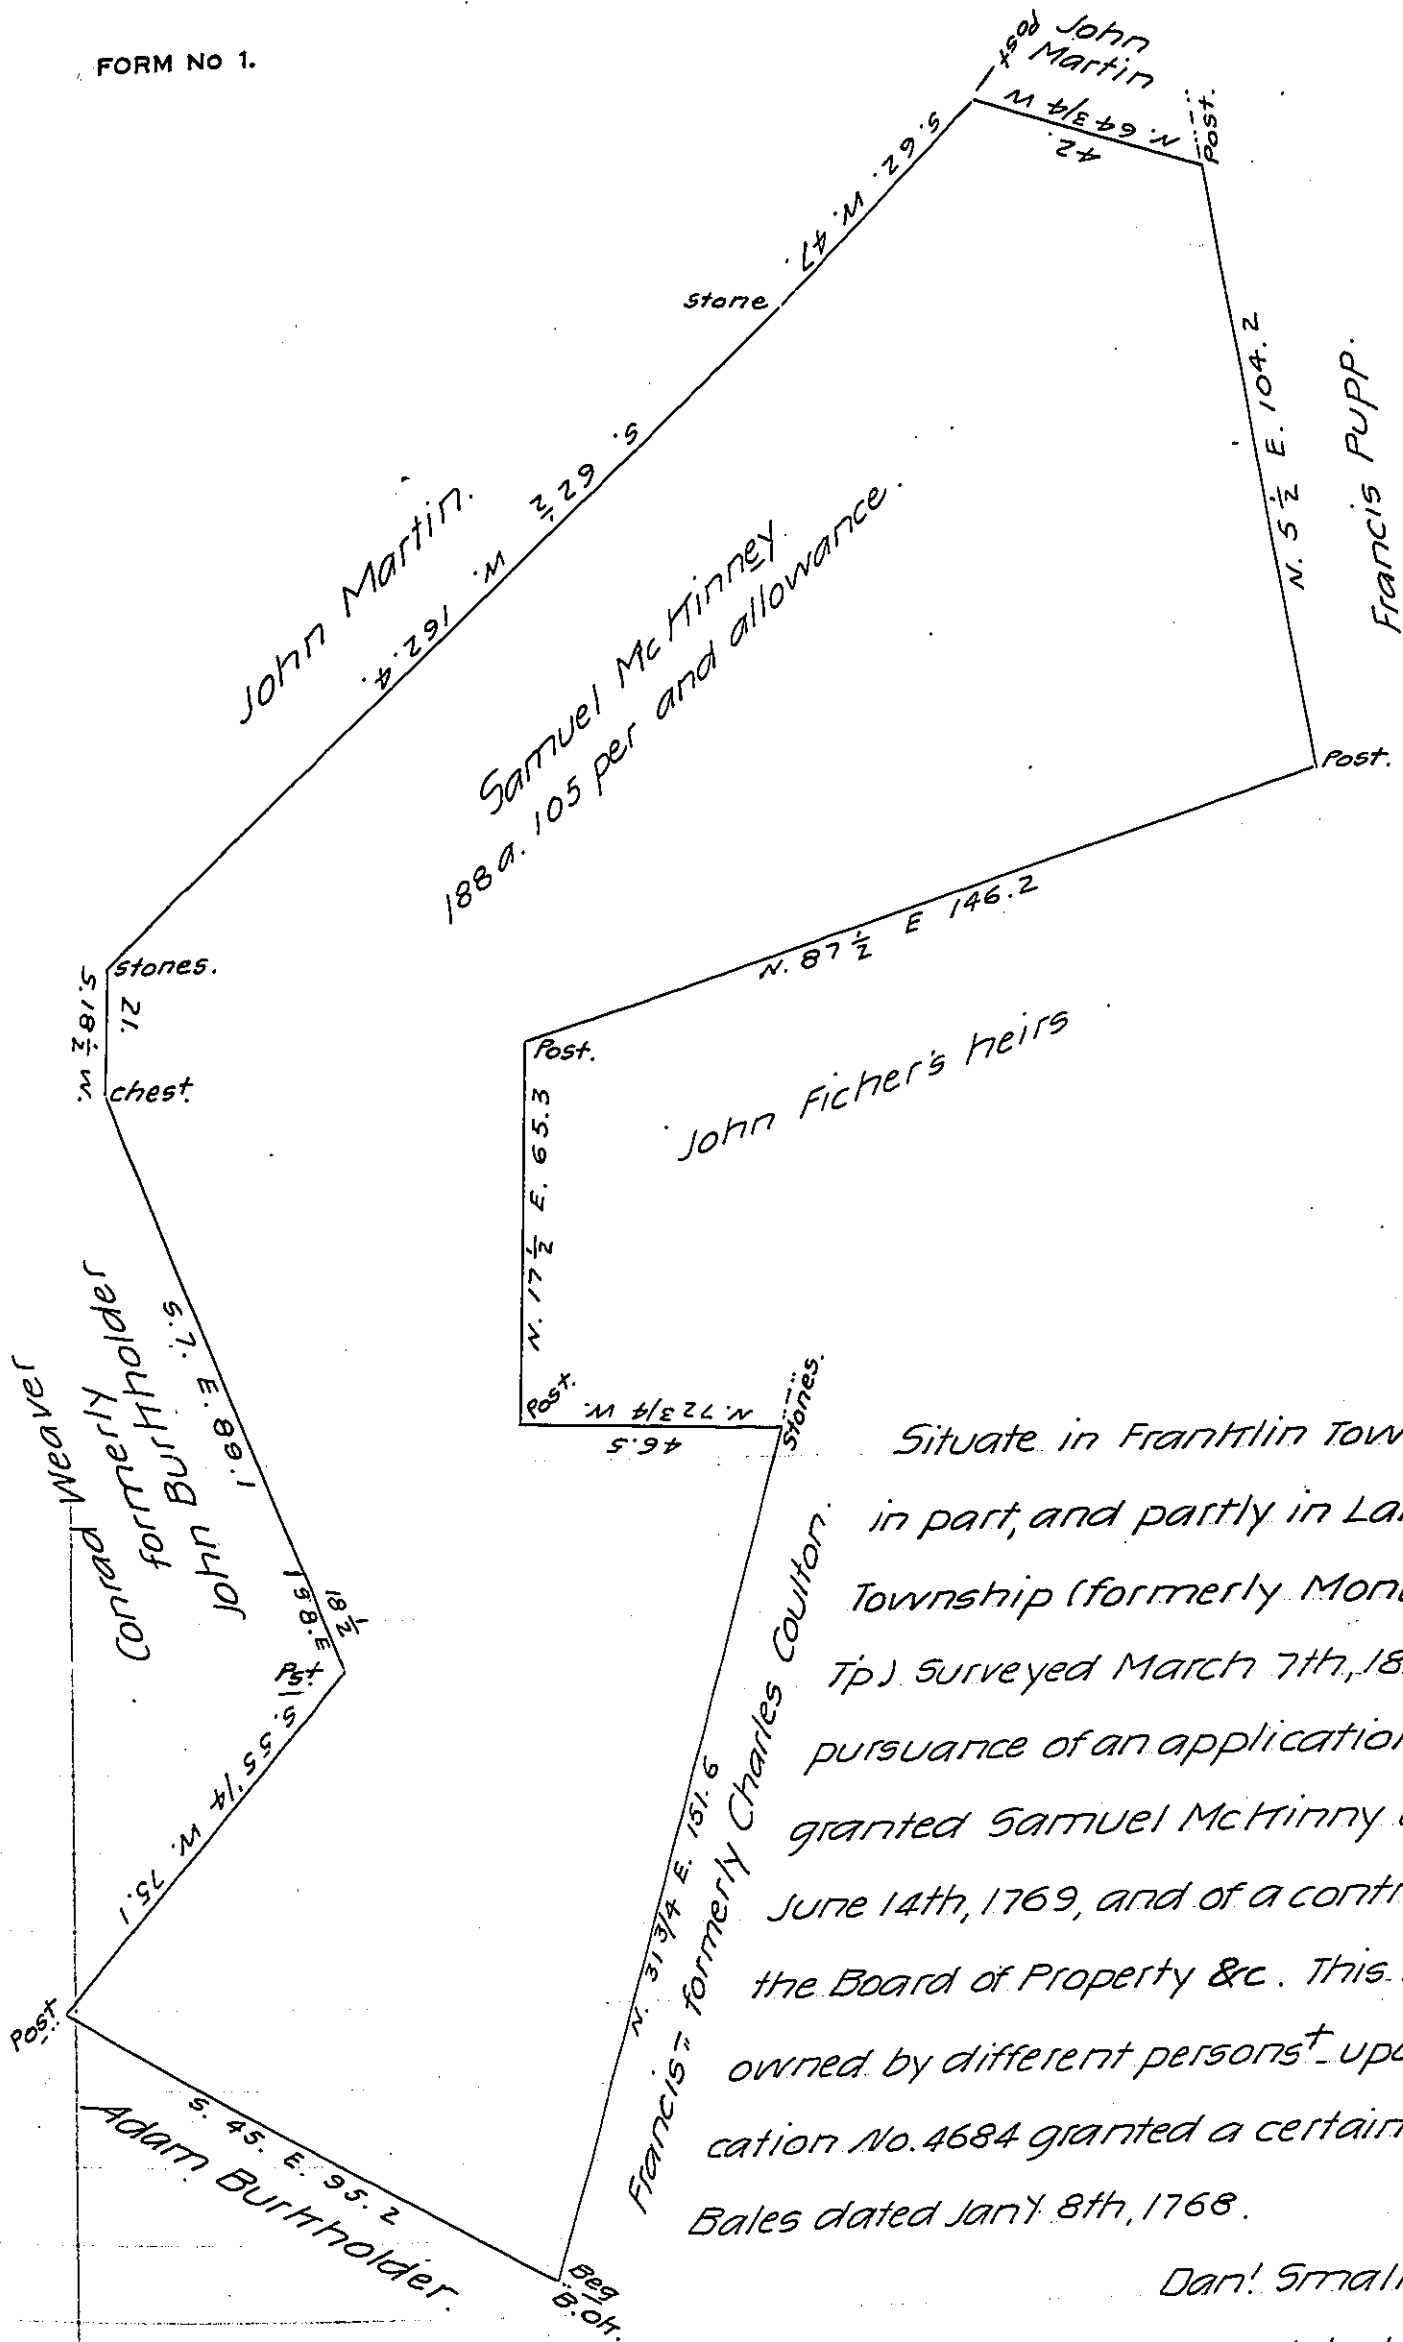 FORM NO 1.
Post
John
Martin
Post.
N. 64 3/4 W
42.
S. 62. W. 47.
stone
N. 5 ½ E. 104.2
Francis Pupp.
S. 62 ½ W. 162.4.
John Martin.
Samuel McKinney.
188 a. 105 per and allowance.
Post.
N. 87 ½ E 146.2
stones.
S. 18 ½ W.
21.
chest.
Post.
John Ficher's heirs
N. 17 ½ E. 65.3
Post.
N. 72 3/4 W.
46.5
Stones.
Conrad Weaver
formerly
formerly
John Burkholder
S. 7. E. 89.1
18 ½
Pst.
S. 55 1/4 W. 75.1
Post
S. 45. E. 95.2
Adam Burkholder.
N. 31 3/4 E. 151.6
Francis " formerly Charles Coulton.
Beg
B. Ok.
Situate in Franklin Tow
in part, and partly in La
Township (formerly Mon
T'p) Surveyed March 7th, 18
pursuance of an application
granted Samuel McKinny
June 14th, 1769, and of a cont
the Board of Property &c. This
owned by different persons + upo
cation No. 4684 granted a certain
Bales dated Jany 8th, 1768.
Danl Small